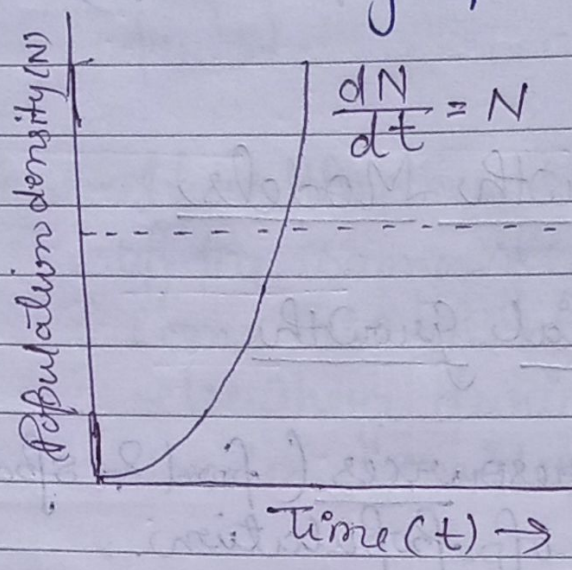 Population density (N)
dN/dt = N
Time (t) →